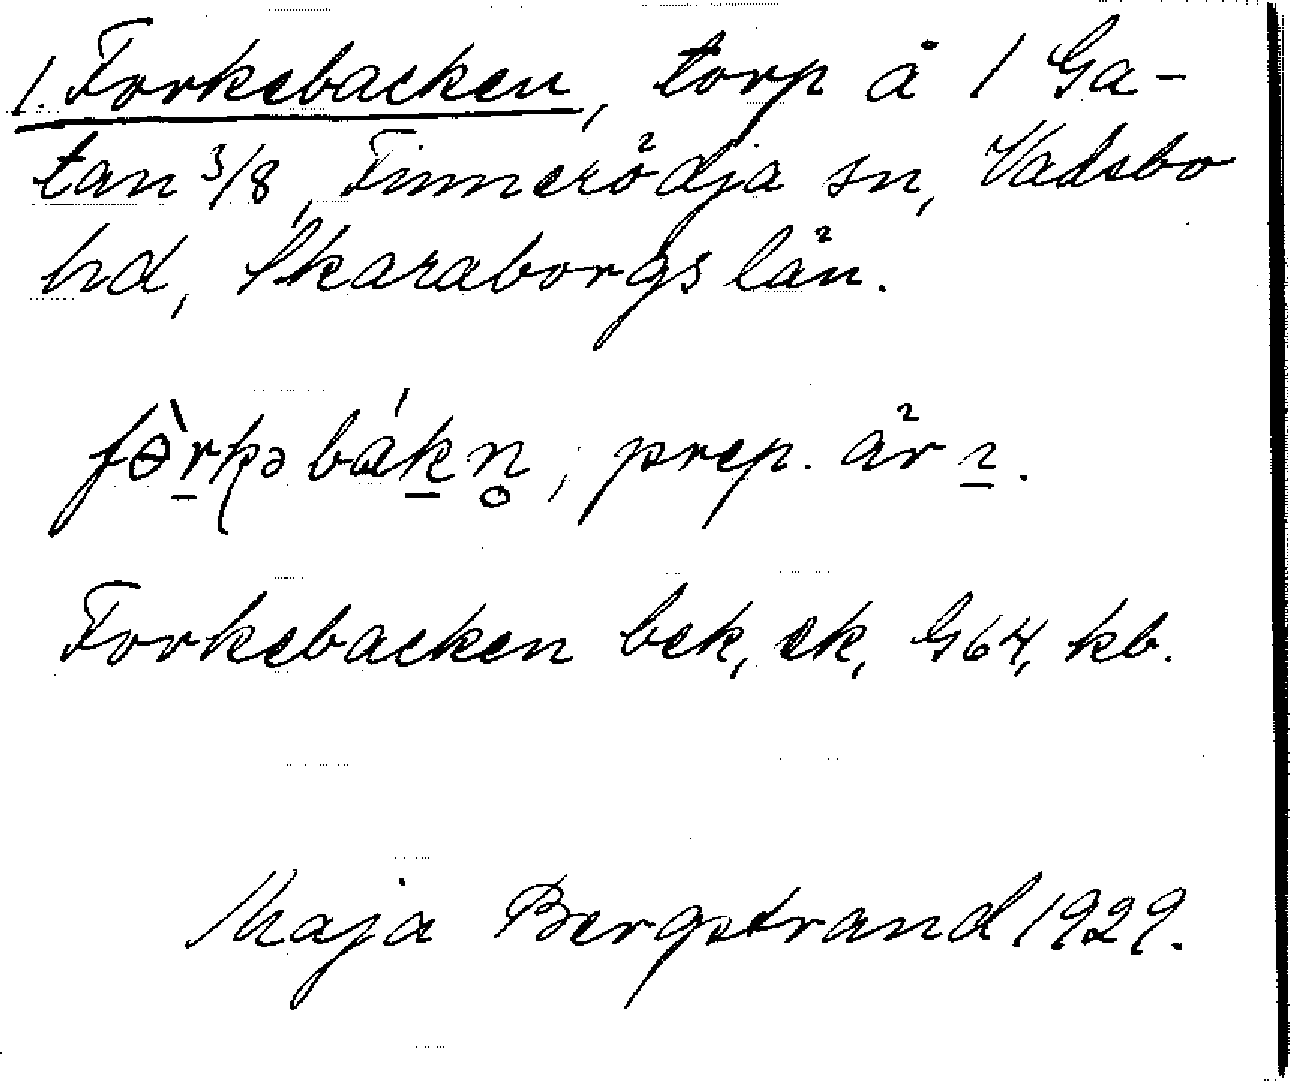 1. Forkebacken, torp å 1 Ga-
tan 3/8, Finnerödja sn, Vadsbo
hd, Skaraborgs län.
fɵ̀r̠kəbák̠n̥, prep. är ı̠.
Forkebacken bek, ek, G64, kb.
Maja Bergstrand 1929.